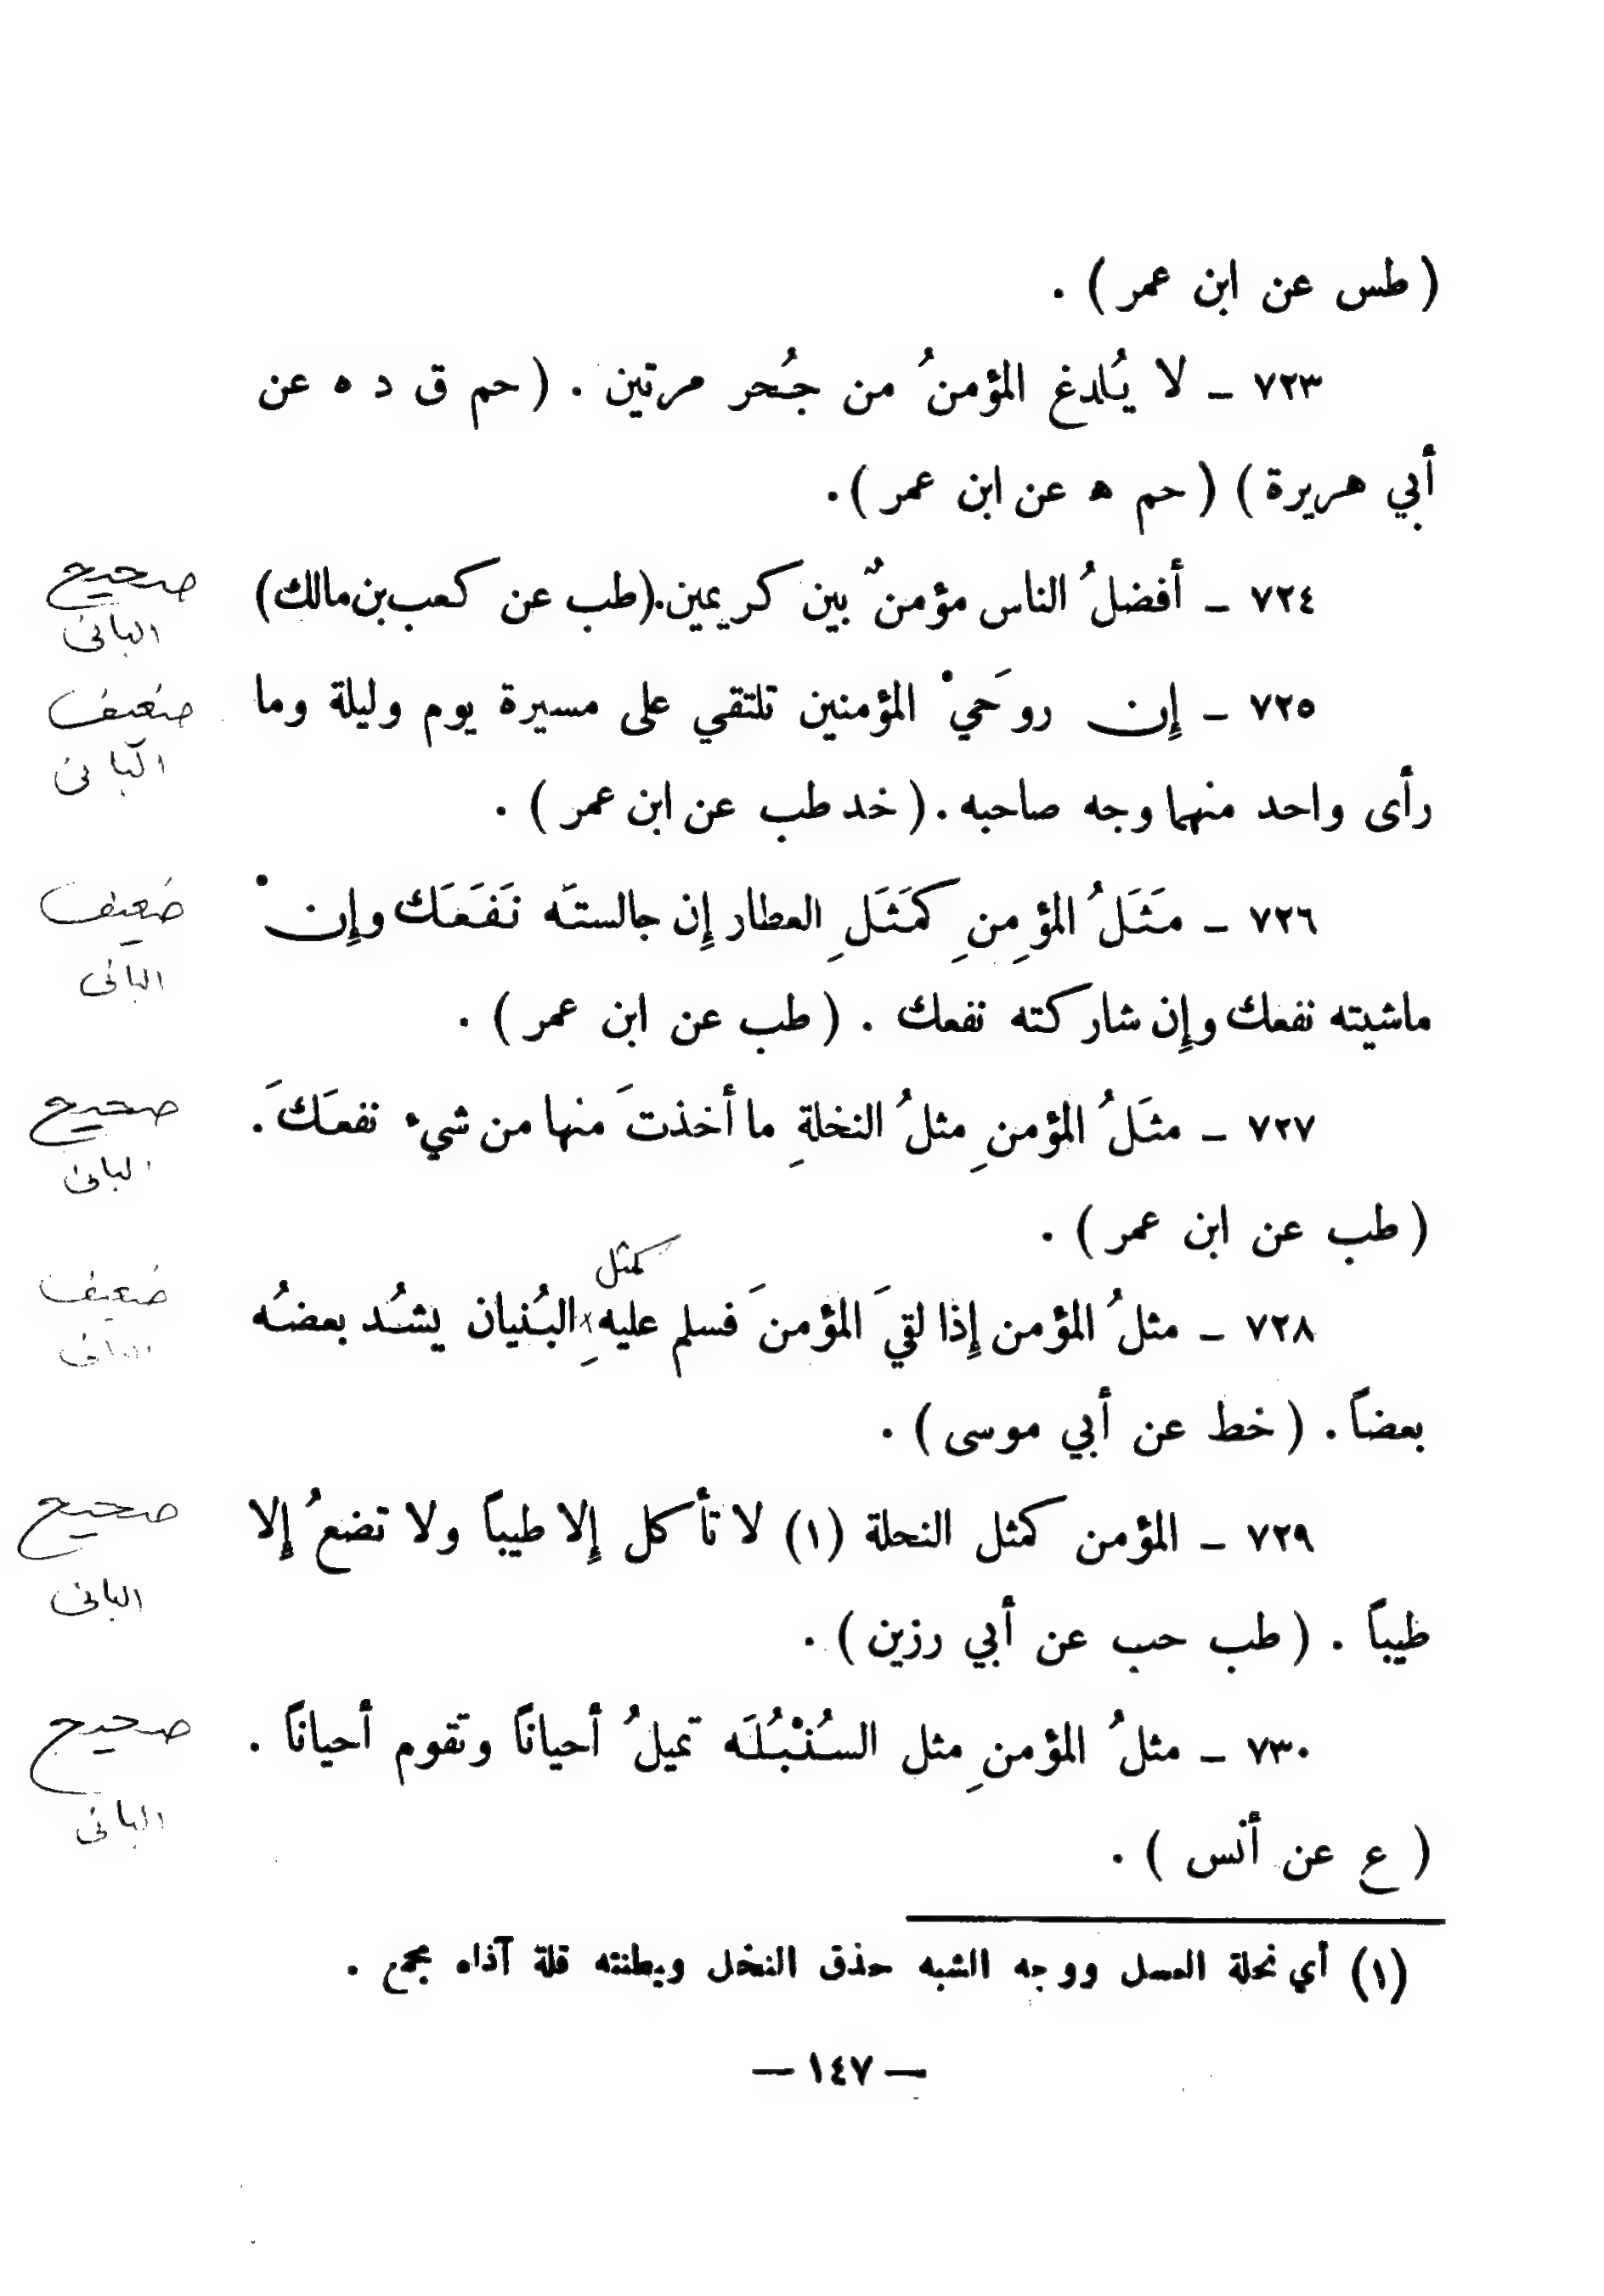 ( طس عن ابن عمر ) .
٧٢٣ ـ لا يُلدغ المؤمنُ من جُحر مرتين . ( حم ق د ه عن
أبي هريرة ) ( حم ه عن ابن عمر ) .
صحيح
٧٢٤ ـ أفضلُ الناس مؤمنٌ بين كريمين . ( طب عن كعب بن مالك )
البانى
ضعيف
٧٢٥ ـ إن روحَيْ المؤمنين تلتقي على مسيرة يوم وليلة وما
البانى
رأى واحد منهما وجه صاحبه . ( خد طب عن ابن عمر ) .
ضعيف
٧٢٦ ـ مَثَلُ المؤمِنِ كمَثَلِ العطار إن جالستَه نَفَعَك وإنْ
البانى
ماشيته نفعك وإن شاركته نفعك . ( طب عن ابن عمر ) .
صحيح
٧٢٧ ـ مثَلُ المؤمنِ مثلُ النخلةِ ما أخذتَ منها من شيء نفعَكَ .
البانى
( طب عن ابن عمر ) .
كمثل
ضعيف
٧٢٨ ـ مثلُ المؤمن إذا لقيَ المؤمنَ فسلم عليهِ البُنيان يشُد بعضُه
البانى
بعضاً . ( خط عن أبي موسى ) .
صحيح
٧٢٩ ـ المؤمن كمثل النحلة (١) لا تأكل إلا طيباً ولا تضعُ إلا
البانى
طيباً . ( طب حب عن أبي رزين ) .
صحيح
٧٣٠ ـ مثلُ المؤمنِ مثل السُنْبُلَه تميلُ أحياناً وتقوم أحياناً .
البانى
( ع عن أنس ) .
(١) أي نحلة العسل ووجه الشبه حذق النخل وبطنته قلة آذاه مجمع .
— ١٤٧ —